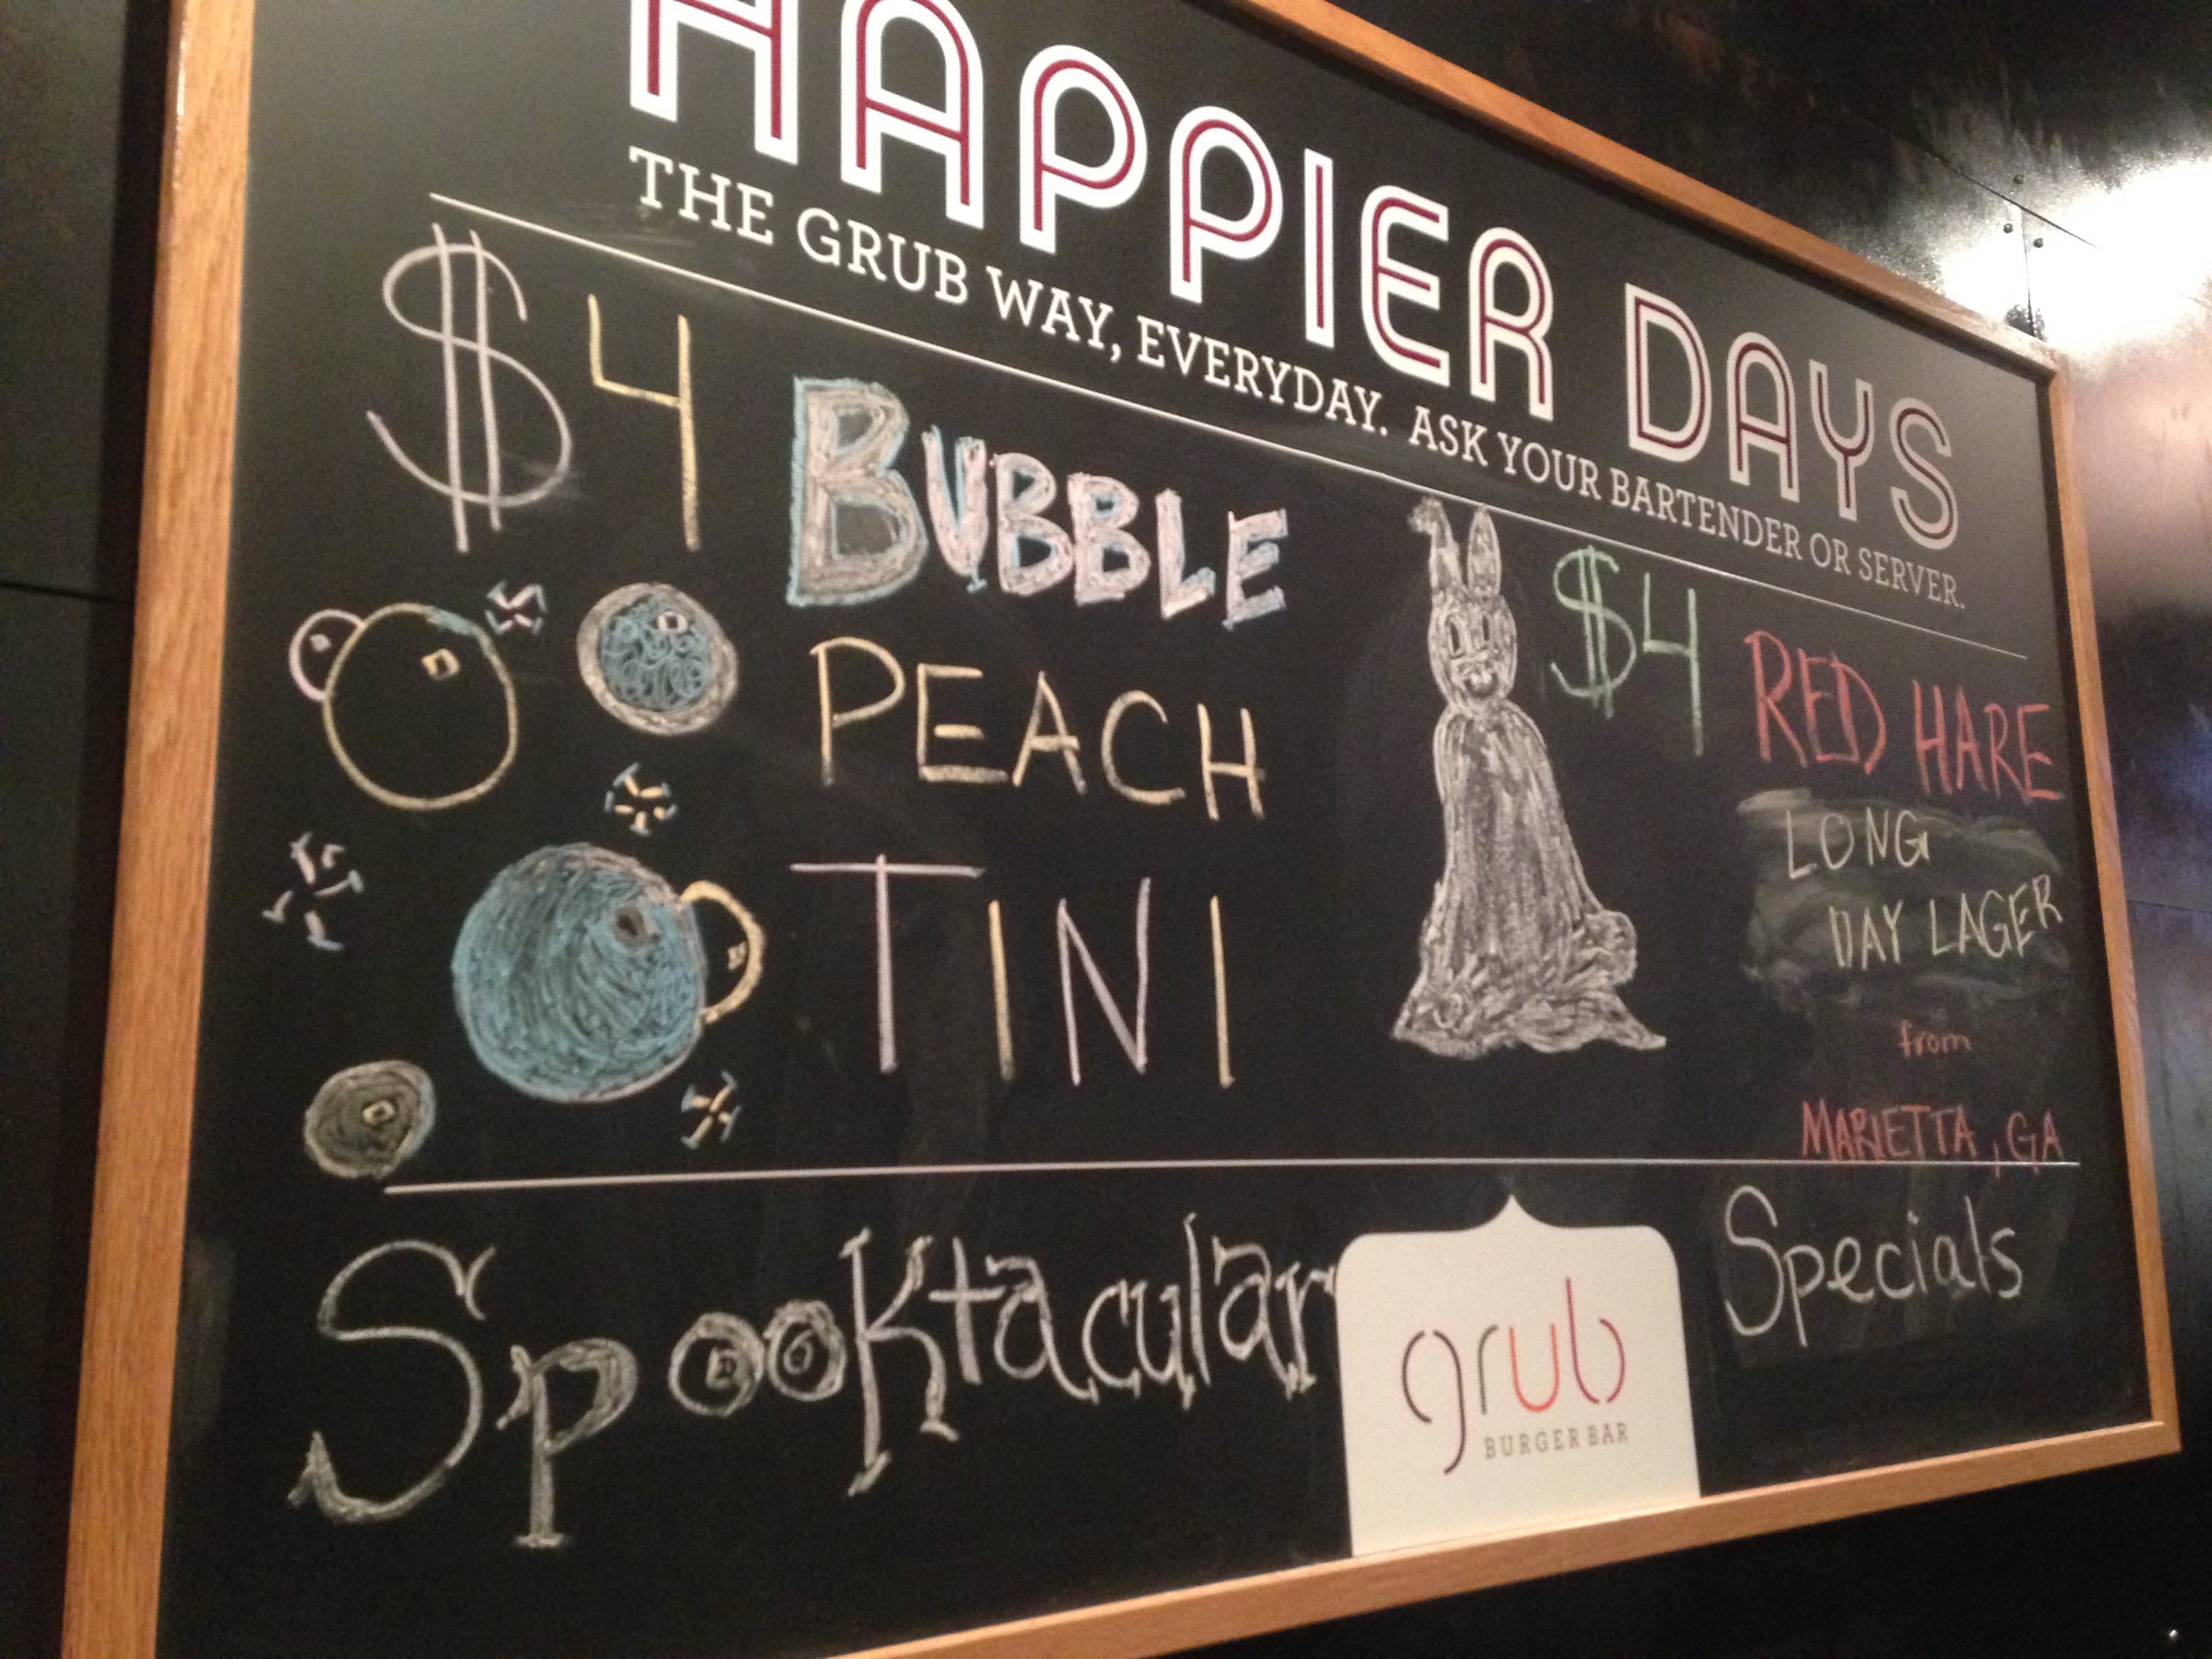 HAPPIER DAYS
THE GRUB WAY, EVERYDAY. ASK YOUR BARTENDER OR SERVER.
$4 BUBBLE
PEACH
TINI
$4 RED HARE
LONG
DAY LAGER
from
MARIETTA, GA
Spooktacular Specials
grub
BURGER BAR